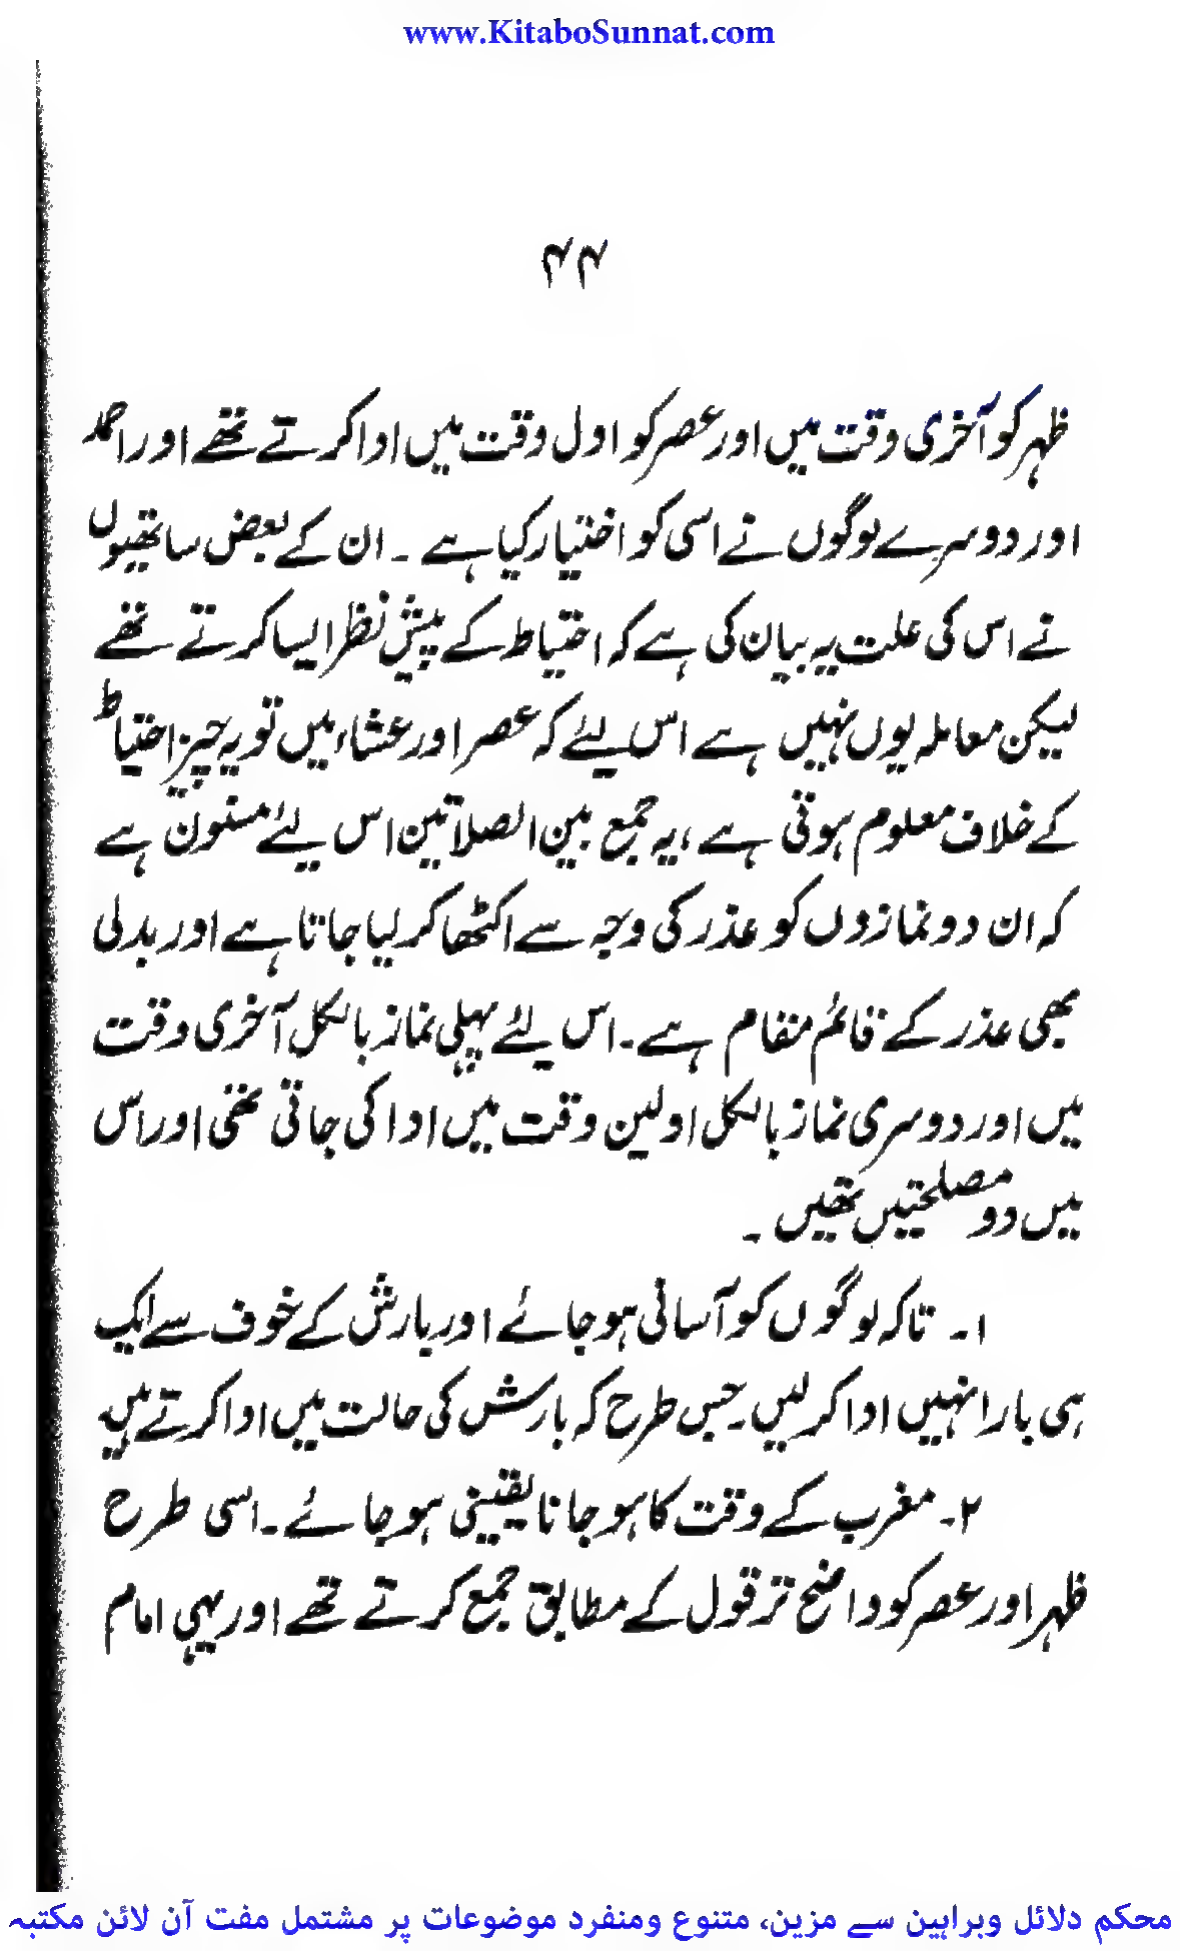 www.KitaboSunnat.com
۴۴
ظہر کو آخری وقت میں اور عصر کو اول وقت میں ادا کرتے تھے اور احمد
اور دوسرے لوگوں نے اسی کو اختیار کیا ہے ۔ ان کے بعض ساتھیوں
نے اس کی علت یہ بیان کی ہے کہ احتیاط کے پیش نظر ایسا کرتے تھے
لیکن معاملہ یوں نہیں ہے اس لیئے کہ عصر اور عشاء میں تو یہ چیز احتیاط
کے خلاف معلوم ہوتی ہے ، یہ جمع بین الصلاتین اس لیئے مسنون ہے
کہ ان دو نمازوں کو عذر کی وجہ سے اکٹھا کر لیا جاتا ہے اور بدلی
بھی عذر کے قائم مقام ہے ۔ اس لیئے پہلی نماز بالکل آخری وقت
میں اور دوسری نماز بالکل اولین وقت میں ادا کی جاتی تھی اور اس
میں دو مصلحتیں تھیں ۔
۱۔ تاکہ لوگوں کو آسانی ہو جائے اور بارش کے خوف سے ایک
ہی بار انہیں ادا کر لیں ۔ جس طرح کہ بارش کی حالت میں ادا کرتے ہیں
۲۔ مغرب کے وقت کا ہو جانا یقینی ہو جائے ۔ اسی طرح
ظہر اور عصر کو واضح تر قول کے مطابق جمع کرتے تھے اور یہی امام
محکم دلائل وبراہین سے مزین، متنوع ومنفرد موضوعات پر مشتمل مفت آن لائن مکتبہ